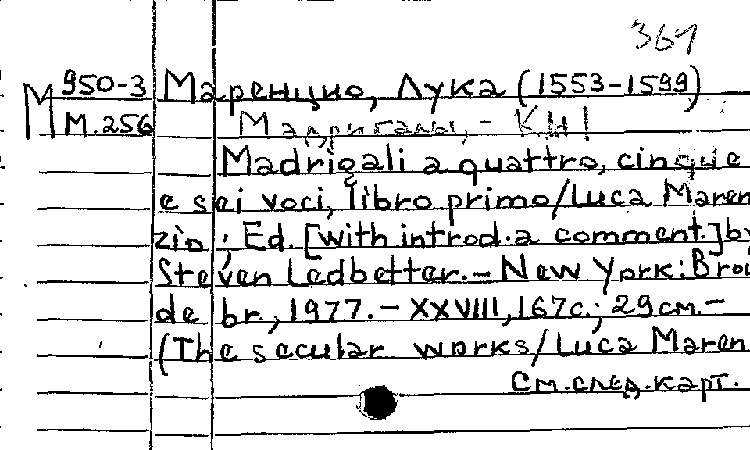 369
М 950-3 Маренцио, Лука (1553-1599)
М.256 Мадригалы,- Кн!
Madrigali a quattro, cinque
e sei voci, libro primo/Luca Maren
zio; Ed. [with introd.a comment.]by
Steven Ledbetter.- New York: Brou
de br., 1977.- XXVIII, 167c.; 29см.-
(The secular works/Luca Maren
См.след.карт.